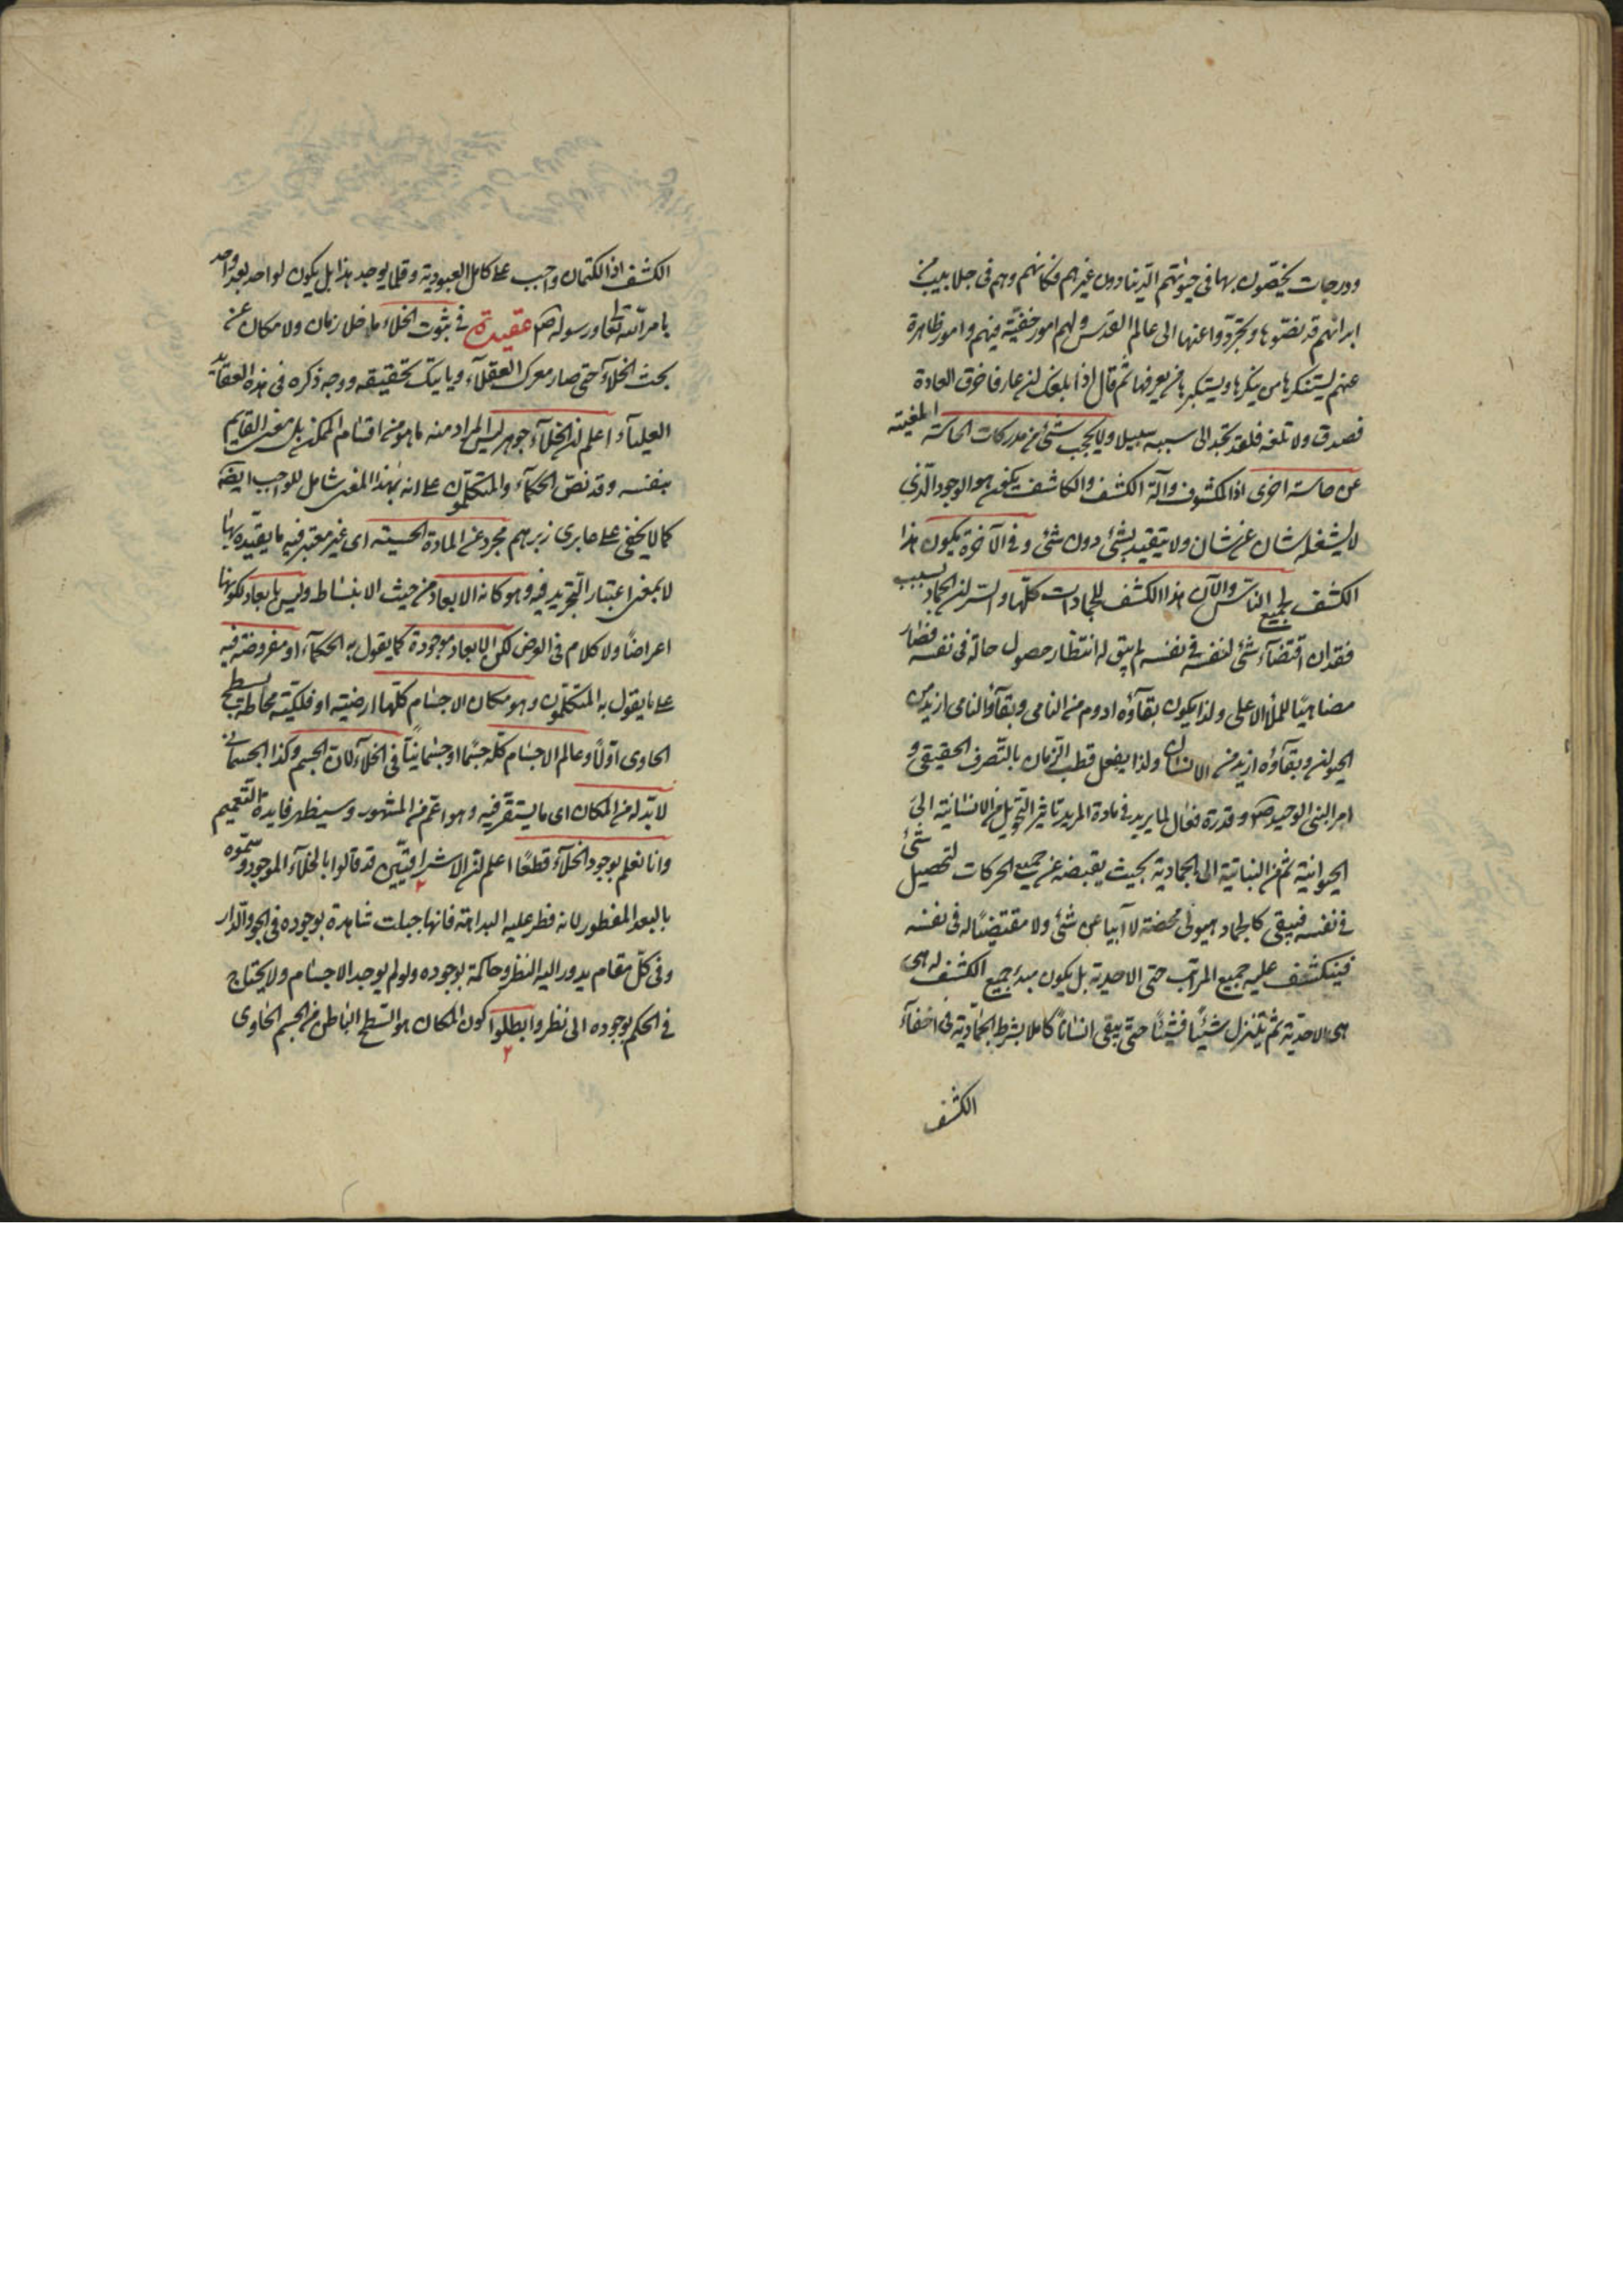 ودرجات يختصون بها في حيوتهم الدنيا دون غيرهم فكانهم وهم في جلابيب من
ابدانهم قد نضوها وتجردوا عنها الى عالم القدس ولهم امور خفية فيهم وامور ظاهرة
عنهم يستنكرها من ينكرها ويستكبرها من يعرفها ثم قال اذا بلغك ان عارفا خرق العادة
فصدق ولا تلغه فلقد تجد الى سببه سبيلا ولا يحجب شئ من مدركات الحاسة المغيبة
عن حاسة اخرى اذ المكشوف وآلة الكشف والكاشف يكون هو الوجود الذي
لا يشغله شان عن شان ولا يتقيد بشئ دون شئ وفي الآخرة يكون هذا
الكشف لجميع الناس والآن هذا الكشف للجمادات كلها والسر ان الجماد بسبب
فقدان اقتضاء شئ لنفسه في نفسه لم يبق له انتظار حصول حالة في نفسه فصار
مضاهيًا للملأ الاعلى ولذا يكون بقاؤه ادوم من النامي وبقاؤ النامي ازيد من
الحيوان وبقاؤه ازيد من الانسان ولذا يفعل قطب الزمان بالتصرف الحقيقي و
امر النبي الوحيد صلعم وقدرة فعال لما يريد في مادة المريد تاثير التحويل من الانسانية الى
الحيوانية ثم من النباتية الى الجمادية بحيث يقبضه عن جميع الحركات لتحصيل شئ
في نفسه فيبقى كالجماد هيولى محضة لا آبيا عن شئ ولا مقتضيًا له في نفسه
فينكشف عليه جميع المراتب حتى الاحدية بل يكون مبدء جميع الكشف له هي
هي الاحدية ثم يتنزل شيئًا فشيئًا حتى يبقى انسانًا كاملا بشرط الجمادية في اخفاء
الكشف
الكشف اذ الكتمان واجب على كامل العبودية وقلما يوجد هذا بل يكون لواحد بعد واحد
بامر الله تعالى ورسوله صلعم عقيدة في ثبوت الخلاء ما خلا زمان ولا مكان عن
بحث الخلاء حتى صار معرك العقلاء وياتيك تحقيقه ووجه ذكره في هذه العقائد
العلياء اعلم ان الخلاء جوهر ليس المراد منه ما هو من اقسام الممكن بل معنى القايم
بنفسه وقد نص الحكماء والمتكلمون على انه بهذا المعنى شامل للواجب ايضا
كما لا يخفى على صابري زبرهم مجرد عن المادة الحسية اى غير معتبر فيه ما يقيده بها
لا بمعنى اعتبار التجريد فيه وهو كانه الابعاد من حيث الانبساط وليس بابعاد لكونها
اعراضًا ولا كلام في العرض لكن الابعاد موجودة كما يقول به الحكماء او مفروضة فيه
على ما يقول به المتكلمون وهو مكان الاجسام كلها ارضية او فلكية محاطة بسطح
الحاوى اولًا وعالم الاجسام كله جسمًا او جسمانيًا في الخلاء لان الجسم وكذا الجسماني
لا بد له من المكان اى ما يستقر فيه وهو اعم من المشهور وسيظهر فايدة التعميم
وانا نعلم بوجود الخلاء قطعًا اعلم ان الاشراقيين قد قالوا بالخلاء الموجود وسموه
بالبعد المفطور لانه فطر عليه البداهة فانها جبلت شاهدة بوجوده في الجو والدار
وفي كل مقام يدور اليه النظر وحاكمة بوجوده ولو لم يوجد الاجسام ولا يحتاج
في الحكم بوجوده الى نظر وابطلوا كون المكان هو السطح الباطن من الجسم الحاوى